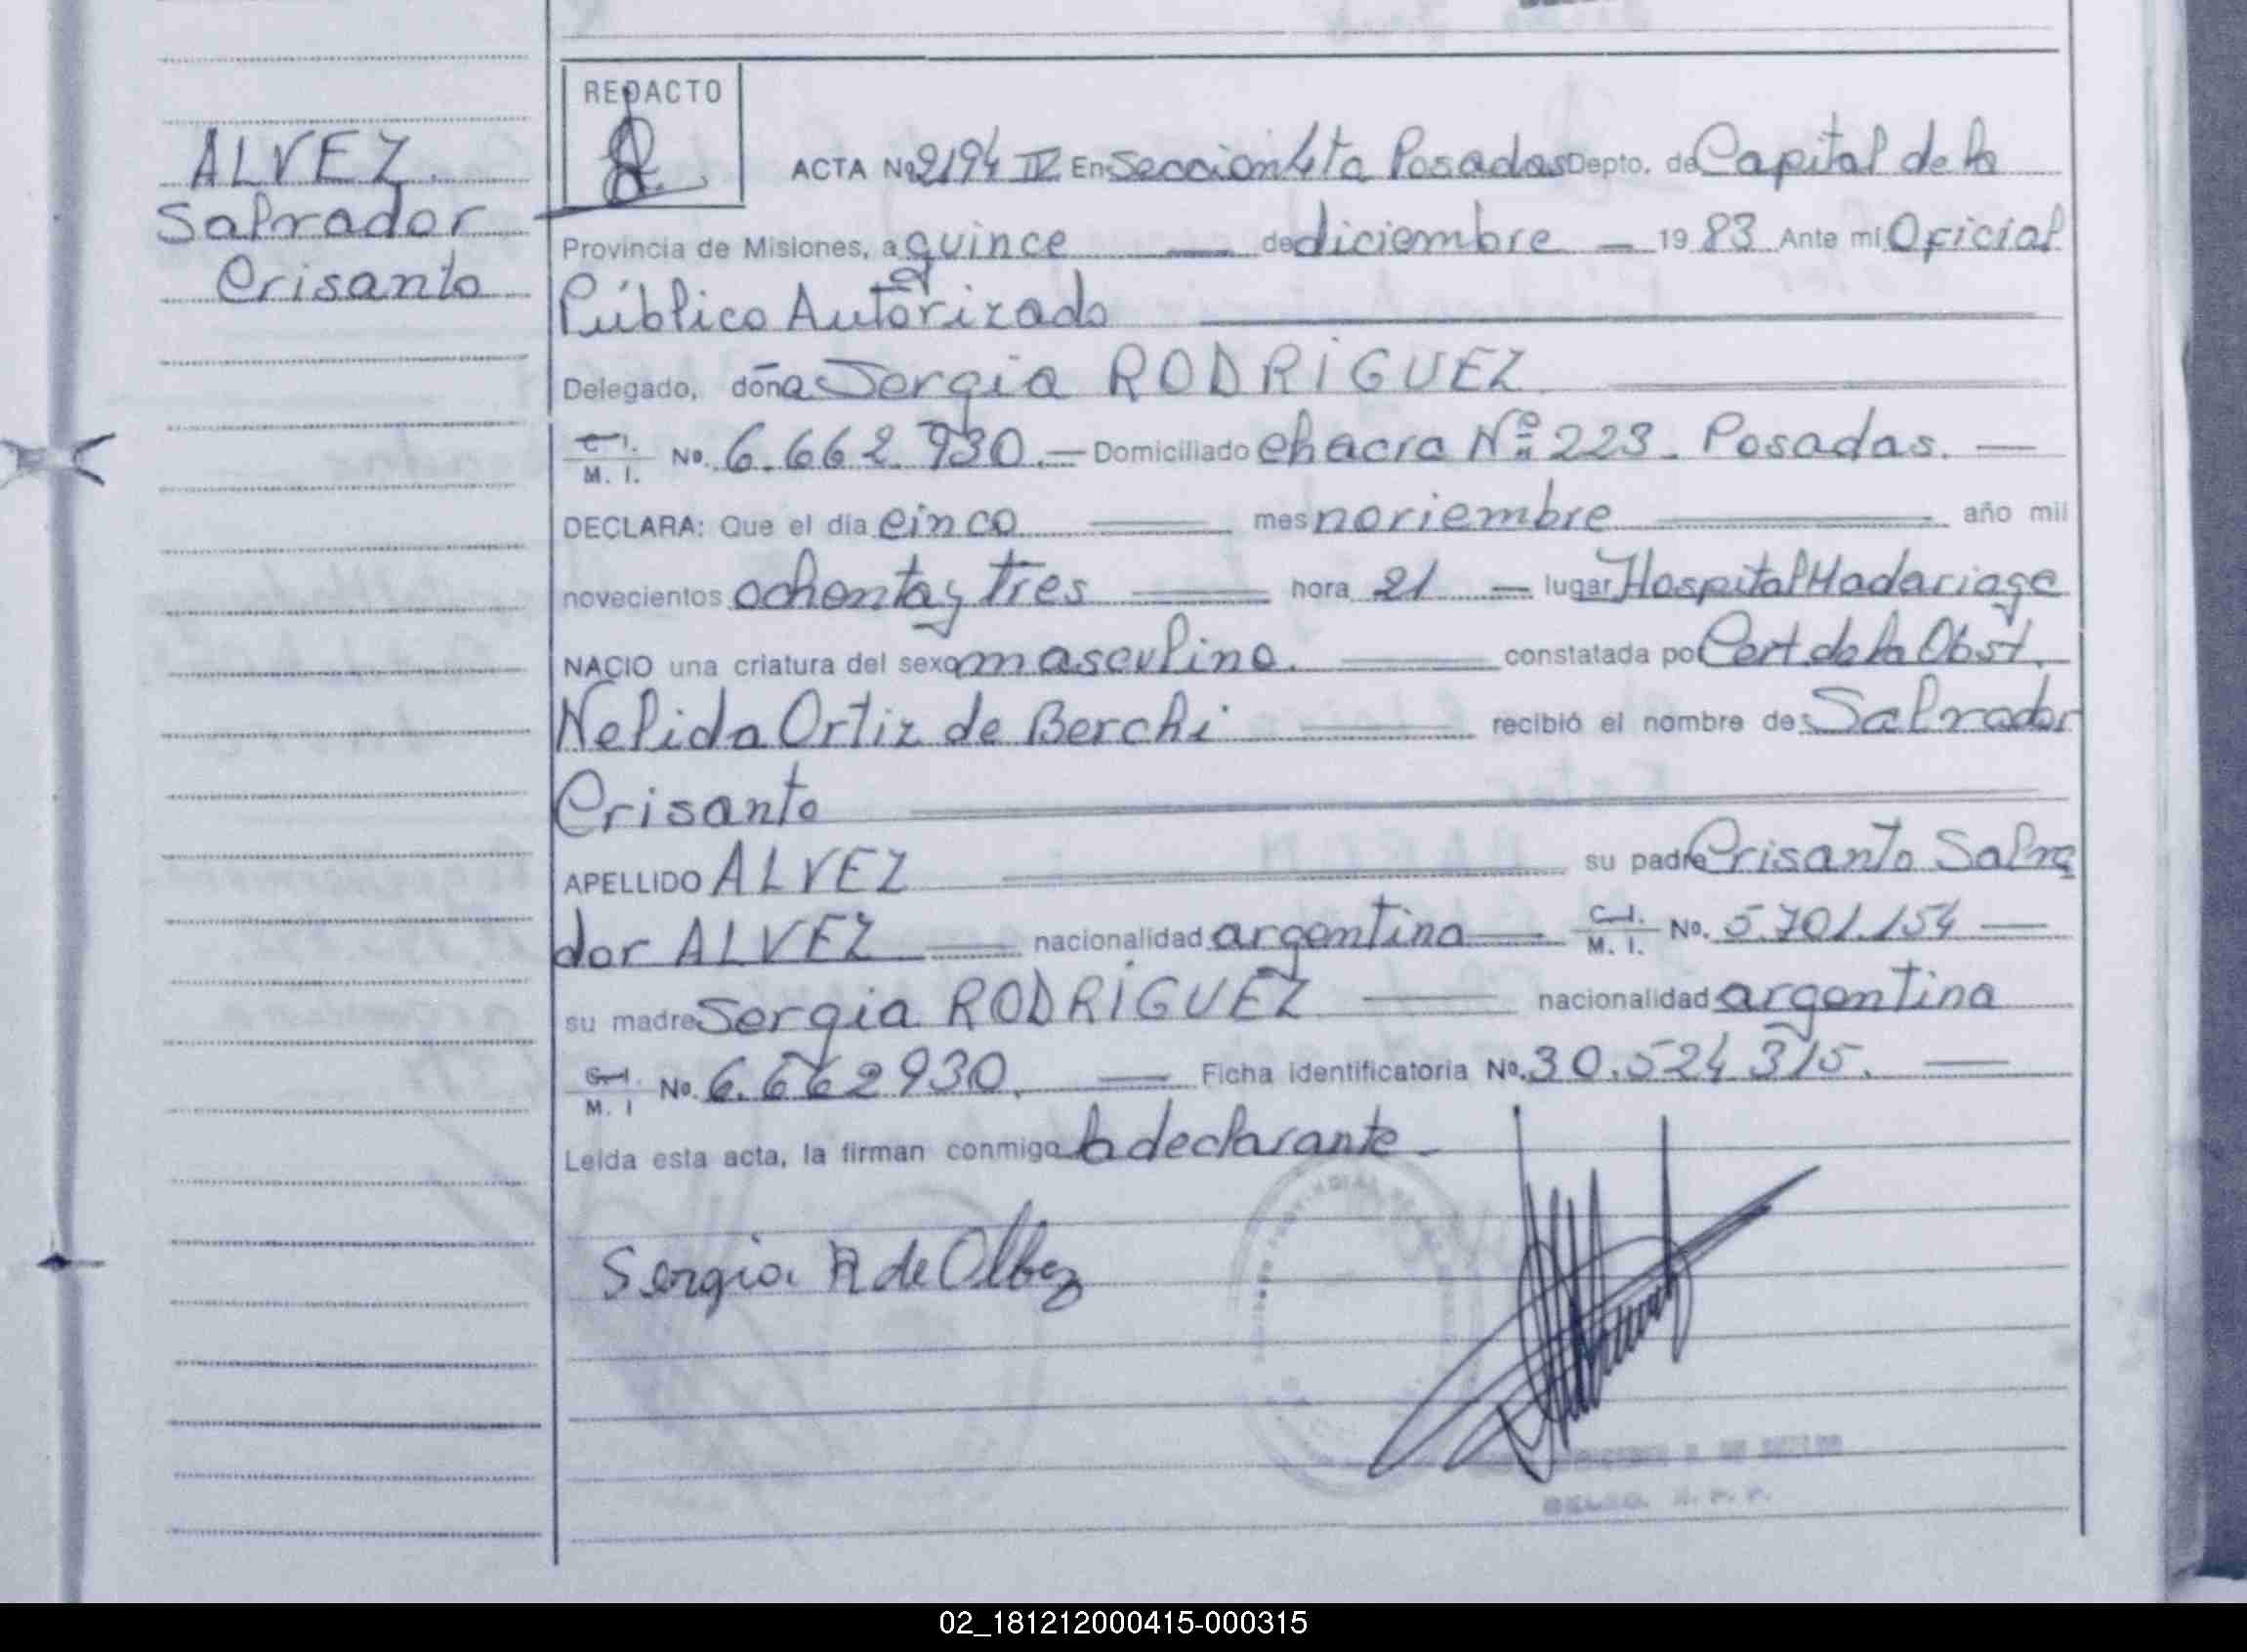 ALVEZ.
Salvador
Crisanto
REDACTO
ACTA No 2194 IV En Seccion 4ta Posadas Depto. de Capital de la
Provincia de Misiones, a quince — de diciembre — 19 83 Ante mi Oficial
Público Autorizado
Delegado, doña Sergia RODRIGUEZ
C. I. M. I. No. 6.662.930.— Domiciliado chacra Nº 223. Posadas. —
DECLARA: Que el día cinco mes noviembre año mil
novecientos ochenta y tres hora 21 — lugar Hospital Madariaga
NACIO una criatura del sexo masculino. constatada por Cert. de la Obst.
Nelida Ortiz de Berchi recibió el nombre de: Salvador
Crisanto
APELLIDO ALVEZ su padre Crisanto Salva
dor ALVEZ nacionalidad argentina C. I. M. I. No. 5.701.154 —
su madre Sergia RODRIGUEZ nacionalidad argentina
C. I. M. I No. 6.662930. Ficha identificatoria No. 30.524.315. —
Leída esta acta, la firman conmigo la declarante -
Sergia R de Olbez
02_181212000415-000315